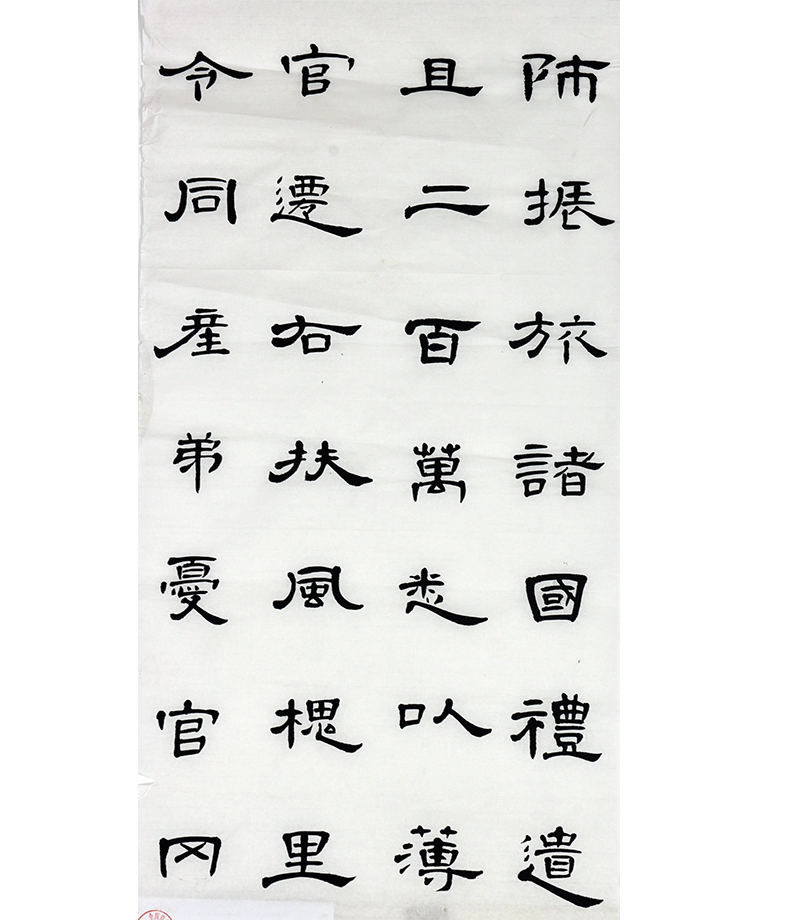 師振旅諸國禮遺
且二百萬悉以薄
官遷右扶風槐里
令同產弟憂官罔